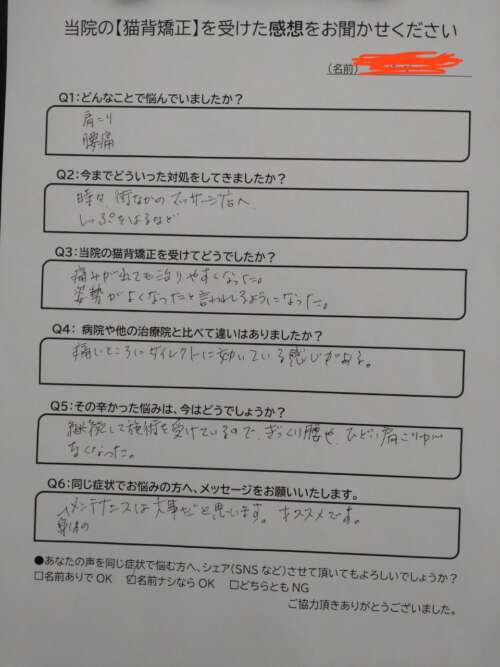 当院の【猫背矯正】を受けた感想をお聞かせください
(名前)
Q1:どんなことで悩んでいましたか?
肩こり
腰痛
Q2:今までどういった対処をしてきましたか?
時々 街なかのマッサージ店へ
しっぷをはるなど
Q3:当院の猫背矯正を受けてどうでしたか?
痛みが出ても治りやすくなった。
姿勢がよくなったと言われるようになった。
Q4: 病院や他の治療院と比べて違いはありましたか?
痛いところにダイレクトに効いている感じがある。
Q5:その辛かった悩みは、今はどうでしょうか?
継続して施術を受けているので、ぎっくり腰や、ひどい肩こりが
なくなった。
Q6:同じ症状でお悩みの方へ、メッセージをお願いいたします。
メンテナンスは大事だと思います。オススメです。
身体の
●あなたの声を同じ症状で悩む方へ、シェア(SNSなど)させて頂いてもよろしいでしょうか?
□名前ありでOK ☑名前ナシならOK □どちらともNG
ご協力頂きありがとうございました。